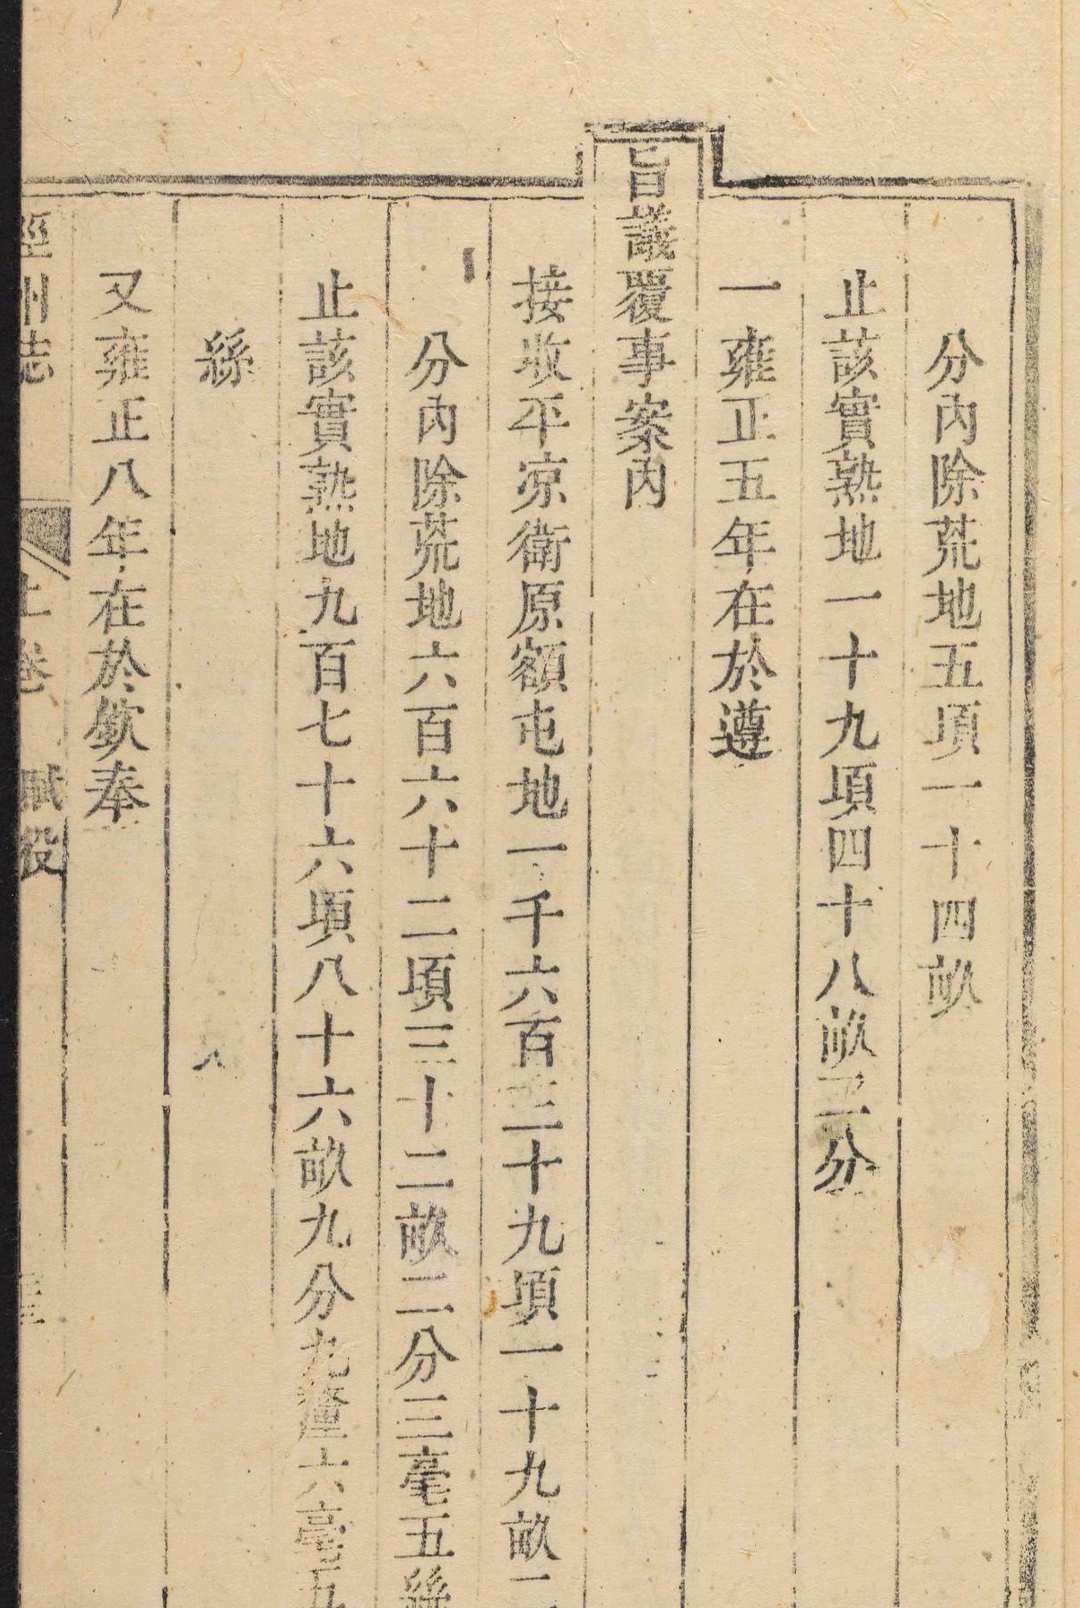 分內除荒地五項一十四畝
止該實熟地一十九項四十八畝二分
一雍正五年在於遵
旨議覆事案內
接收平凉衛原額屯地一千六百三十九項一十九畝二
分內除荒地六百六十二頃三十二畝二分三毫五絲
止該實熟地九百七十六頃八十六畝九分九釐六毫五
絲
又雍正八年在於欽奉
涇州志 上卷 賦役